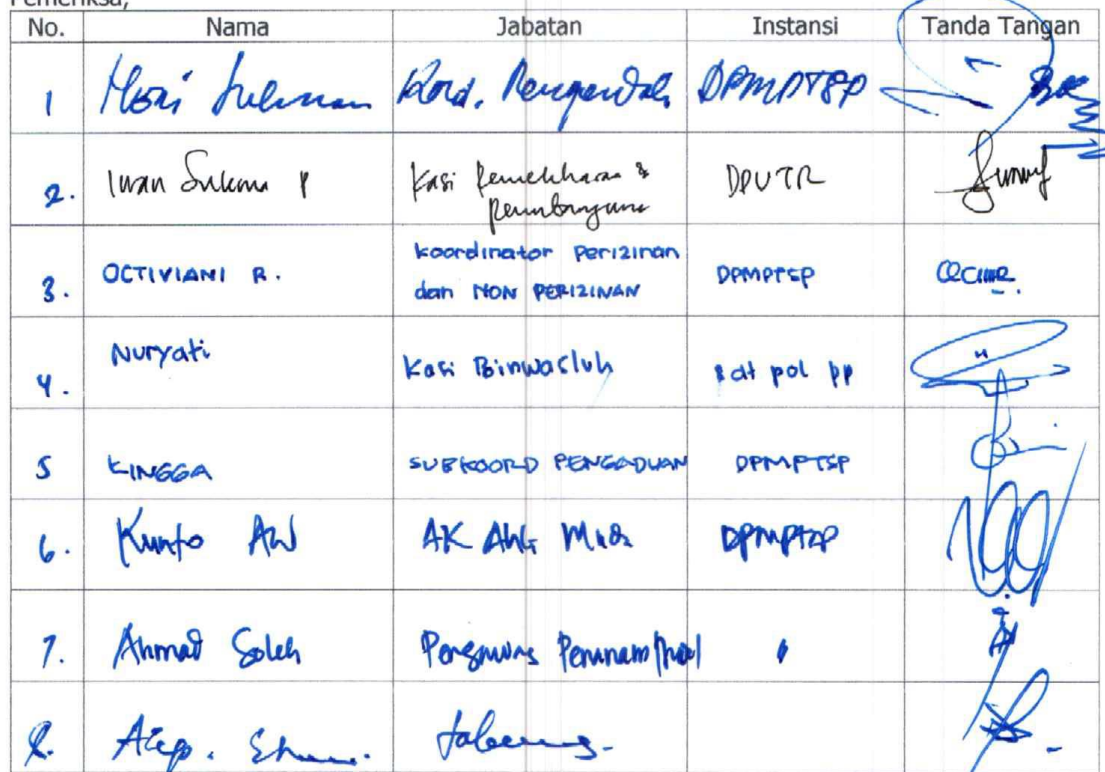 Pemeriksa,
No. Nama Jabatan Instansi Tanda Tangan
1 Koord. Pengendali DPMPTSP
2. Iwan Sukma P Kasi Pemeliharaan & DPUTR
Pembangunan
3. OCTIVIANI R. koordinator Perizinan DPMPTSP
dan NON PERIZINAN
4. Nuryati Kasi Binwasluh sat pol pp
5 KINGGA SUBKOORD PENGADUAN DPMPTSP
6. Kunto AW AK Ahli Muda DPMPTSP
7. Ahmad Soleh Pengawas Penanam Modal
8. Acep.